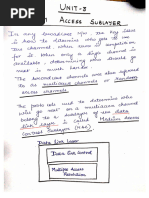 UNIT-3
ACCESS SUBLAYER
In any broadcast n/w, the key issue
is how to determine who gets to use
the channel when there is competition
for it. When only a single channel is
available, determining who should
go next is much harder.
The broadcast channels are also referred
to as multiaccess channels or random
access channels.
The protocols used to determine who
goes next on a multiaccess channel
belong to a sublayer of the data
link layer is called Medium Access
Control Sublayer (MAC)
Data Link Layer
Data link Control
Multiple Access
Resolution